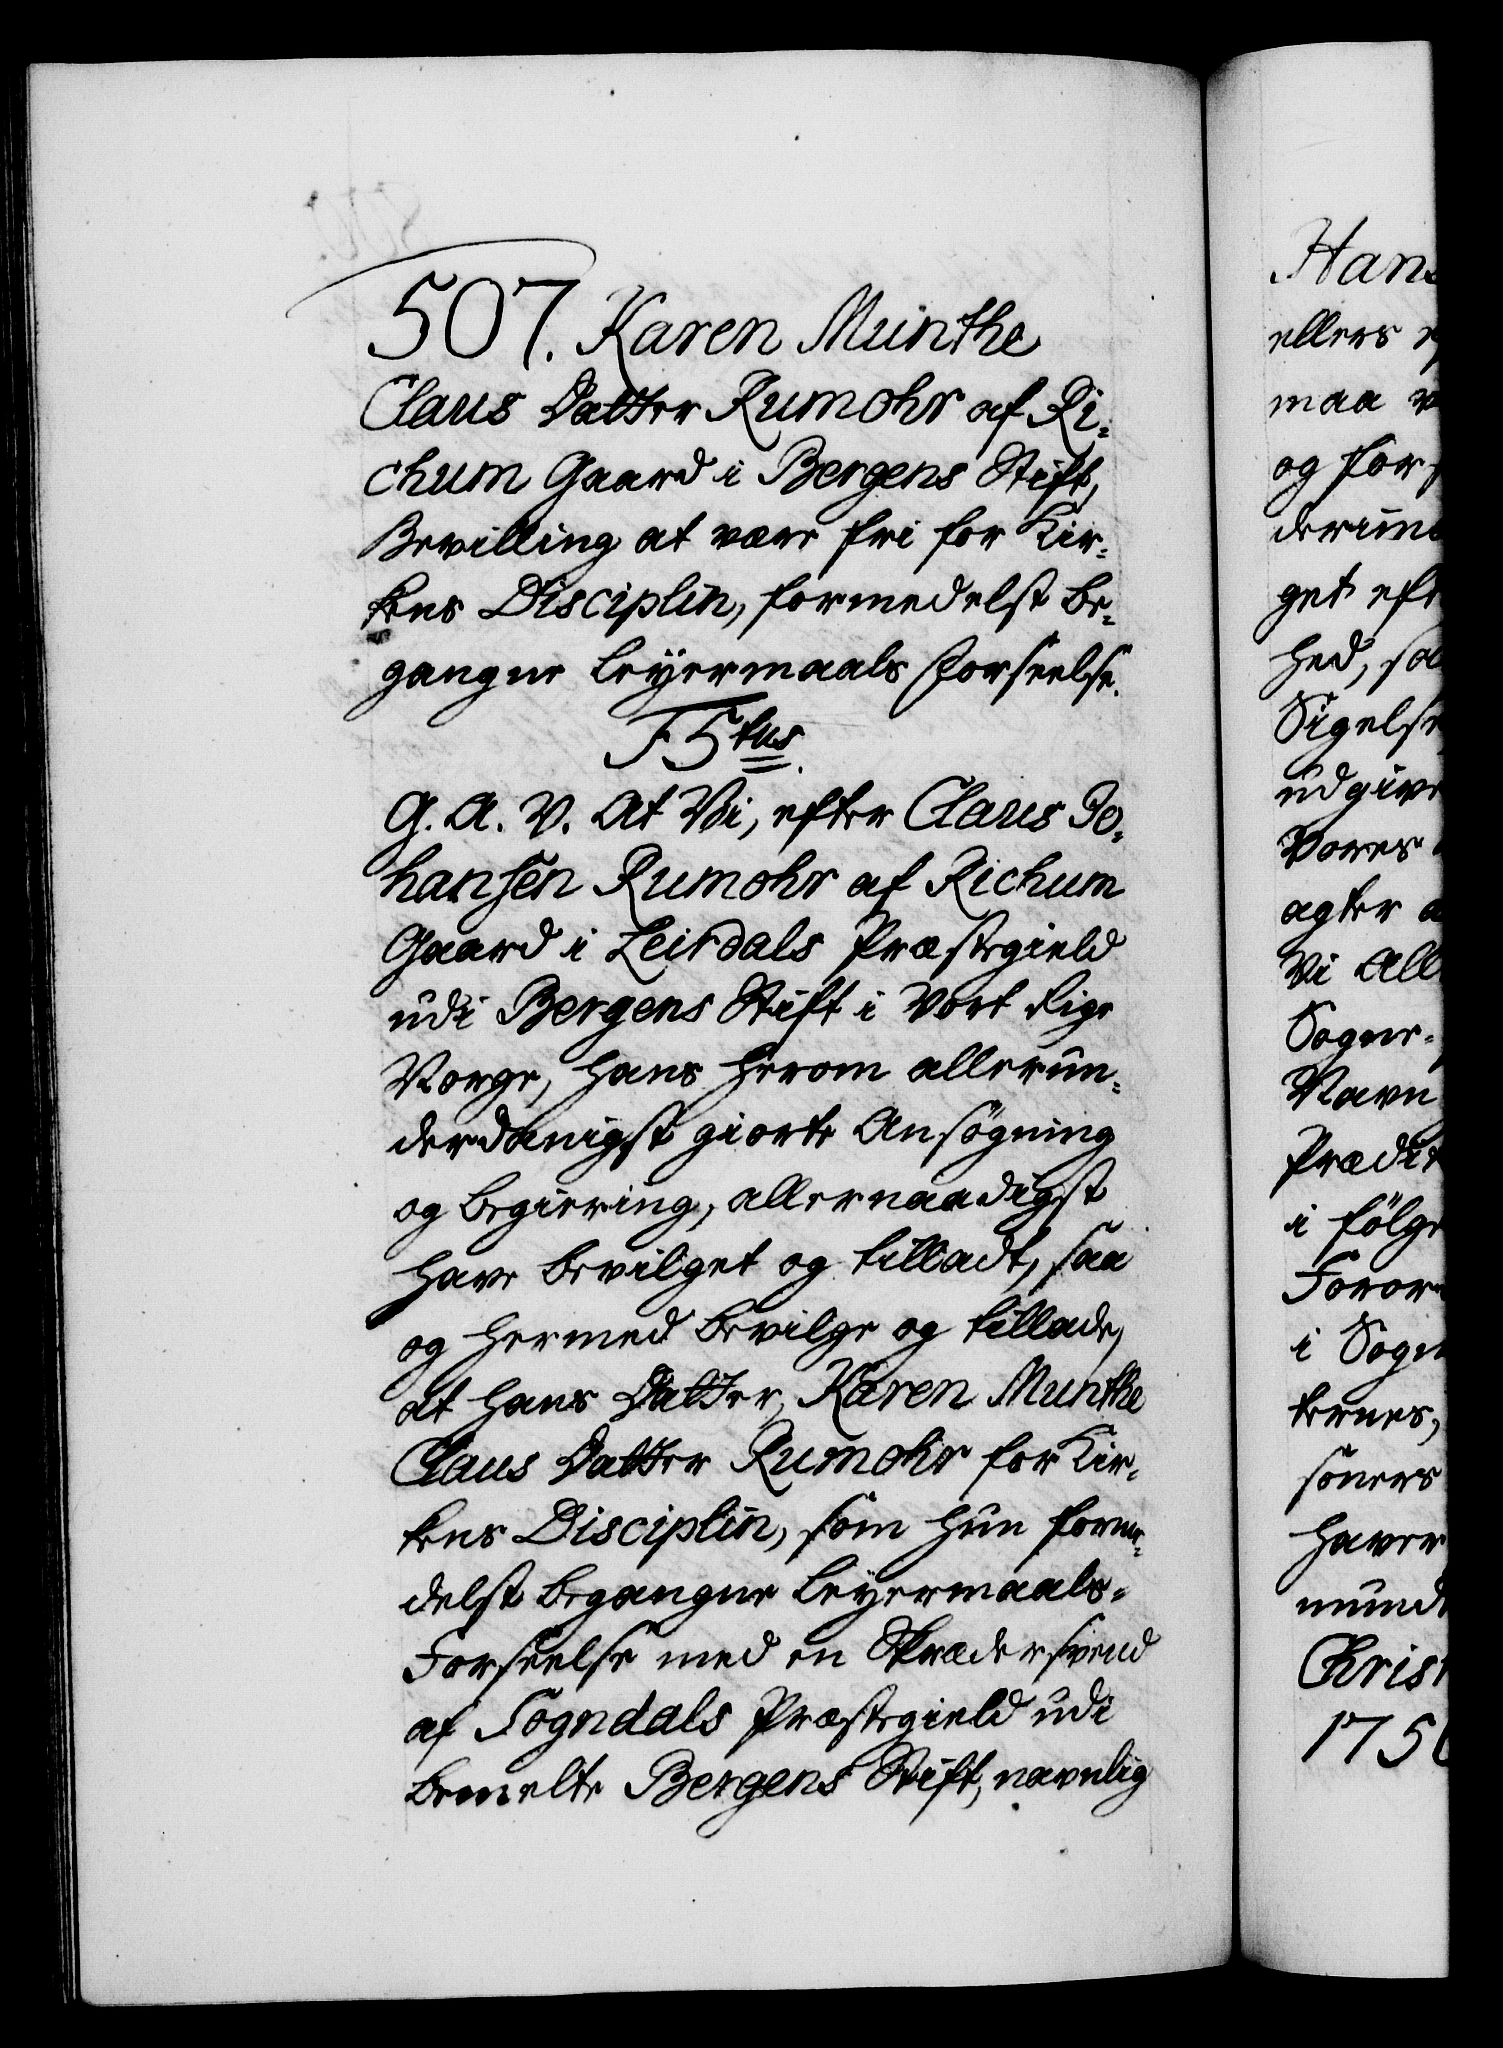 507. Karen Munthe
Claus Datter Rumohr af Ri-
chum Gaard i Bergens Stift,
Bevilling at være fri for Kir-
kens Disciplin, formedelst be-
gangne Leyermaals Forseelse.
F 5tus.
G. A. V. At Vi, efter Claus Jo-
hansen Rumohr af Richum
Gaard i Leirdals Præstegield
udi Bergens Stift i Vort Rige
Norge, hans herom allerun-
derdanigst giorte Ansøgning
og Begiering, allernaadigst
have bevilget og tilladt, saa
og hermed bevilge og tillade,
at hans Datter, Karen Munthe
Claus Datter Rumohr for Kir-
kens Disciplin, som hun forme-
delst begangne Leyermaals-
Forseelse med en Skrædersvend
af Sogndals Præstegield udi
bemelte Bergens Stift, navnlig
Hans
ellers
maa
og for
get
hed, saa
Sigelse
udgive
Vores
agter
Vi All
Sogne-
Navn
i følge
Foror
i Sogn
kernes,
haver
Christ
175